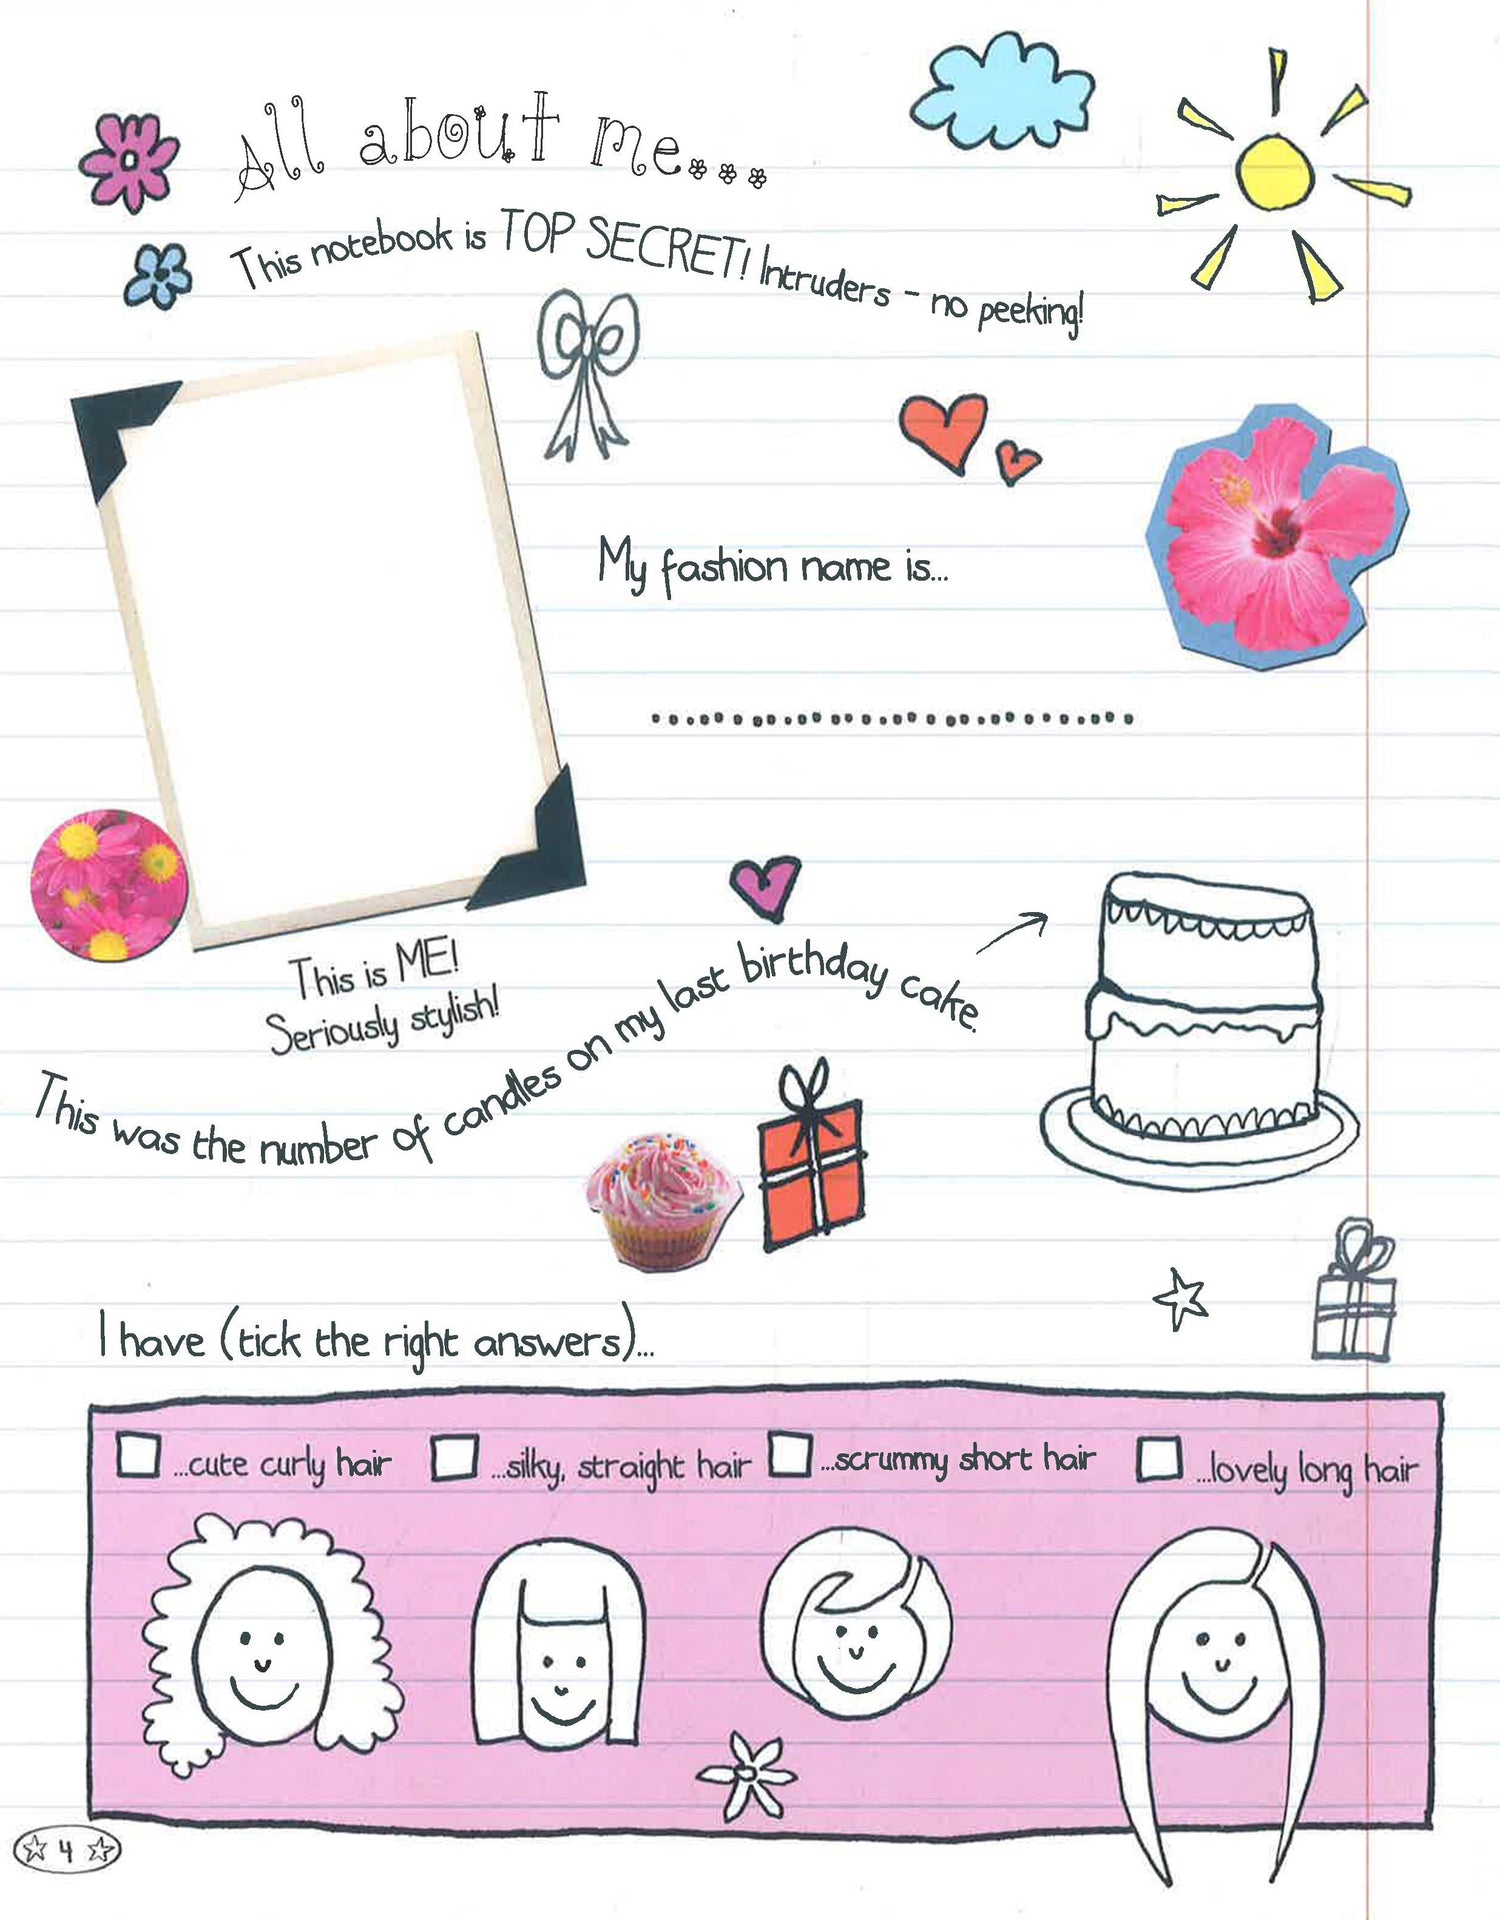 All about me...
This notebook is TOP SECRET! Intruders - no peeking!
My fashion name is...
This is ME!
Seriously stylish!
This was the number of candles on my last birthday cake.
I have (tick the right answers)...
...cute curly hair
...silky, straight hair
...scrummy short hair
...lovely long hair
4